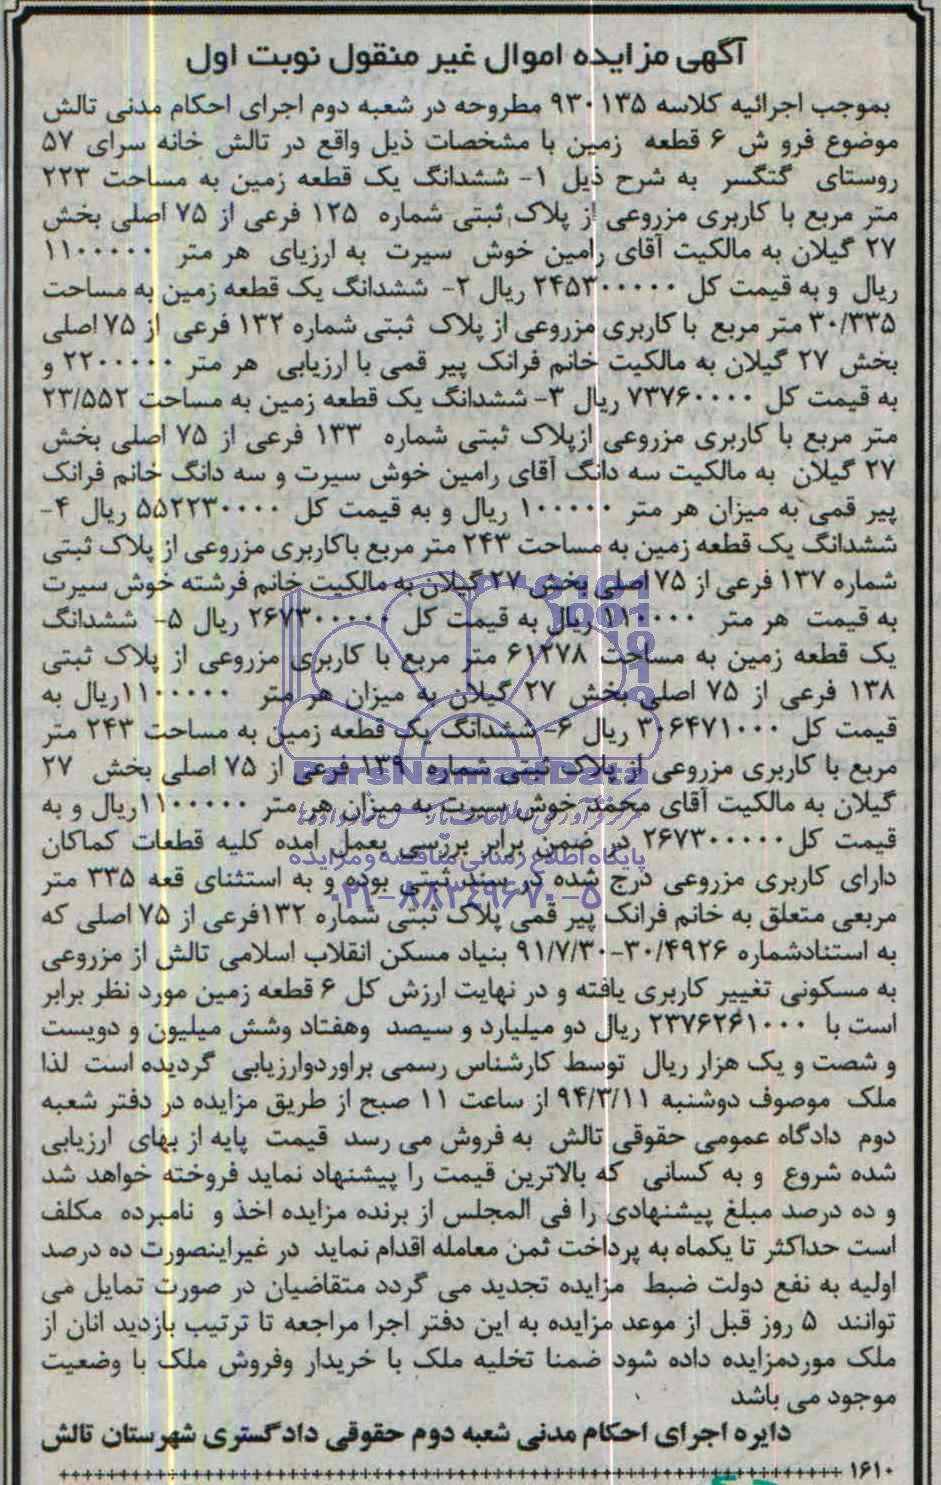 آگهی مزایده اموال غیر منقول نوبت اول
بموجب اجرائیه کلاسه ۹۳۰۱۳۵ مطروحه در شعبه دوم اجرای احکام مدنی تالش
موضوع فرو ش ۶ قطعه زمین با مشخصات ذیل واقع در تالش خانه سرای ۵۷
روستای گتگسر به شرح ذیل ۱- ششدانگ یک قطعه زمین به مساحت ۲۲۳
متر مربع با کاربری مزروعی از پلاک ثبتی شماره ۱۲۵ فرعی از ۷۵ اصلی بخش
۲۷ گیلان به مالکیت آقای رامین خوش سیرت به ارزیای هر متر ۱۱۰۰۰۰۰
ریال و به قیمت کل ۲۴۵۳۰۰۰۰۰ ریال ۲- ششدانگ یک قطعه زمین به مساحت
۳۰/۳۳۵ متر مربع با کاربری مزروعی از پلاک ثبتی شماره ۱۳۲ فرعی از ۷۵ اصلی
بخش ۲۷ گیلان به مالکیت خانم فرانک پیر قمی با ارزیابی هر متر ۲۲۰۰۰۰۰ و
به قیمت کل ۷۳۷۶۰۰۰۰ ریال ۳- ششدانگ یک قطعه زمین به مساحت ۲۳/۵۵۲
متر مربع با کاربری مزروعی ازپلاک ثبتی شماره ۱۳۳ فرعی از ۷۵ اصلی بخش
۲۷ گیلان به مالکیت سه دانگ آقای رامین خوش سیرت و سه دانگ خانم فرانک
پیر قمی به میزان هر متر ۱۰۰۰۰۰۰ ریال و به قیمت کل ۵۵۲۲۳۰۰۰۰ ریال ۴-
ششدانگ یک قطعه زمین به مساحت ۲۴۳ متر مربع باکاربری مزروعی از پلاک ثبتی
شماره ۱۳۷ فرعی از ۷۵ اصلی بخش ۲۷ گیلان به مالکیت خانم فرشته خوش سیرت
به قیمت هر متر ۱۱۰۰۰۰۰ ریال به قیمت کل ۲۶۷۳۰۰۰۰۰ ریال ۵- ششدانگ
یک قطعه زمین به مساحت ۶۱۲۷۸ متر مربع با کاربری مزروعی از پلاک ثبتی
۱۳۸ فرعی از ۷۵ اصلی بخش ۲۷ گیلان به میزان هر متر ۱۱۰۰۰۰۰ریال به
قیمت کل ۳۰۶۴۷۱۰۰۰ ریال ۶- ششدانگ یک قطعه زمین به مساحت ۲۴۳ متر
مربع با کاربری مزروعی از پلاک ثبتی شماره ۱۳۹ فرعی از ۷۵ اصلی بخش ۲۷
گیلان به مالکیت آقای محمد خوش سیرت به میزان هر متر ۱۱۰۰۰۰۰ریال و به
قیمت کل۲۶۷۳۰۰۰۰۰ در ضمن برابر بررسی بعمل امده کلیه قطعات کماکان
دارای کاربری مزروعی درج شده در سند ثبتی بوده و به استثنای قعه ۳۳۵ متر
مربعی متعلق به خانم فرانک پیر قمی پلاک ثبتی شماره ۱۳۲فرعی از ۷۵ اصلی که
به استنادشماره ۳۰/۴۹۲۶-۹۱/۷/۳۰ بنیاد مسکن انقلاب اسلامی تالش از مزروعی
به مسکونی تغییر کاربری یافته و در نهایت ارزش کل ۶ قطعه زمین مورد نظر برابر
است با ۲۳۷۶۲۶۱۰۰۰ ریال دو میلیارد و سیصد وهفتاد وشش میلیون و دویست
و شصت و یک هزار ریال توسط کارشناس رسمی براوردوارزیابی گردیده است لذا
ملک موصوف دوشنبه ۹۴/۳/۱۱ از ساعت ۱۱ صبح از طریق مزایده در دفتر شعبه
دوم دادگاه عمومی حقوقی تالش به فروش می رسد قیمت پایه از بهای ارزیابی
شده شروع و به کسانی که بالاترین قیمت را پیشنهاد نماید فروخته خواهد شد
و ده درصد مبلغ پیشنهادی را فی المجلس از برنده مزایده اخذ و نامبرده مکلف
است حداکثر تا یکماه به پرداخت ثمن معامله اقدام نماید در غیراینصورت ده درصد
اولیه به نفع دولت ضبط مزایده تجدید می گردد متقاضیان در صورت تمایل می
توانند ۵ روز قبل از موعد مزایده به این دفتر اجرا مراجعه تا ترتیب بازدید انان از
ملک موردمزایده داده شود ضمنا تخلیه ملک با خریدار وفروش ملک با وضعیت
موجود می باشد
دایره اجرای احکام مدنی شعبه دوم حقوقی دادگستری شهرستان تالش
۱۶۱۰
ParsNamadData
مرکز فرآوری اطلاعات پارس نماد داده ها
پایگاه اطلاع رسانی مناقصه و مزایده
۰۲۱-۸۸۳۴۹۶۷۰-۵